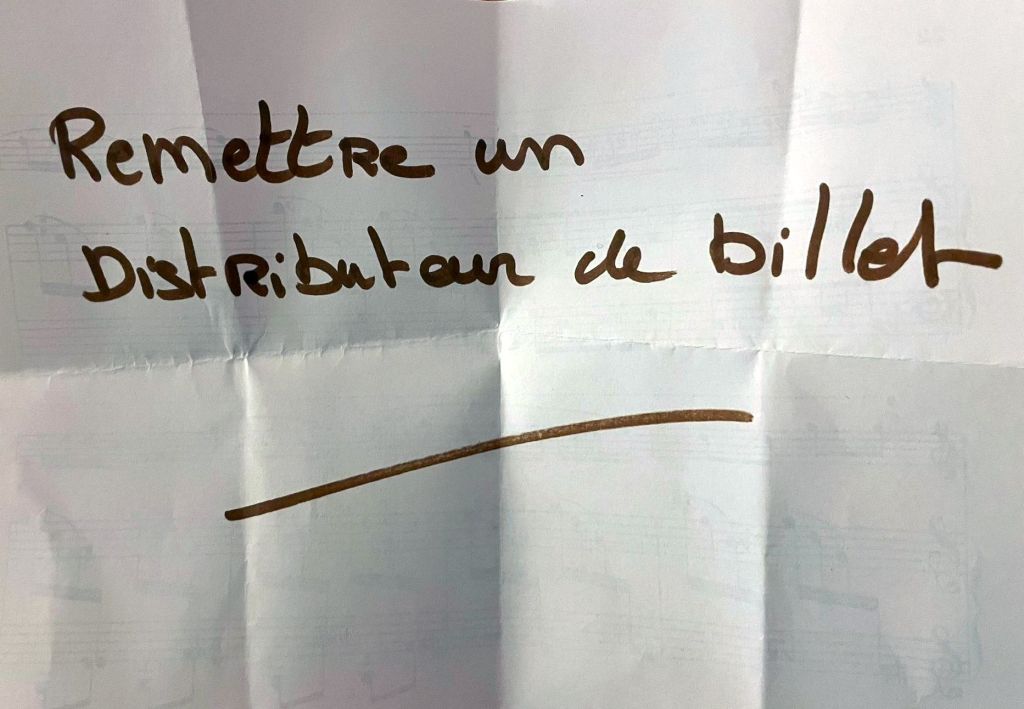 Remettre un
Distributeur de billet